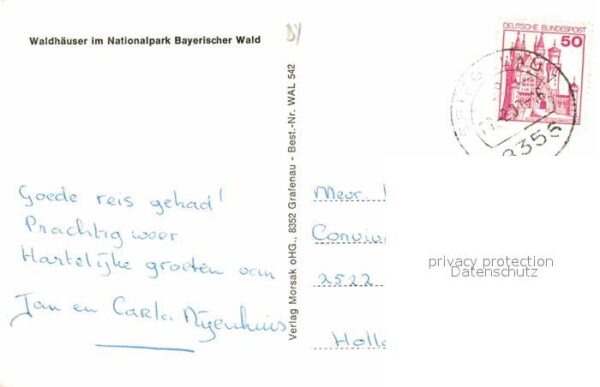 Waldhäuser im Nationalpark Bayerischer Wald
DEUTSCHE BUNDESPOST
50
8356
Goede reis gehad!
Prachtig weer
Hartelijke groeten van
Jan en Carla Nijenhuis
Verlag Morsak oHG., 8352 Grafenau - Best.-Nr. WAL 542
Mevr.
2522
Holla
privacy protection
Datenschutz